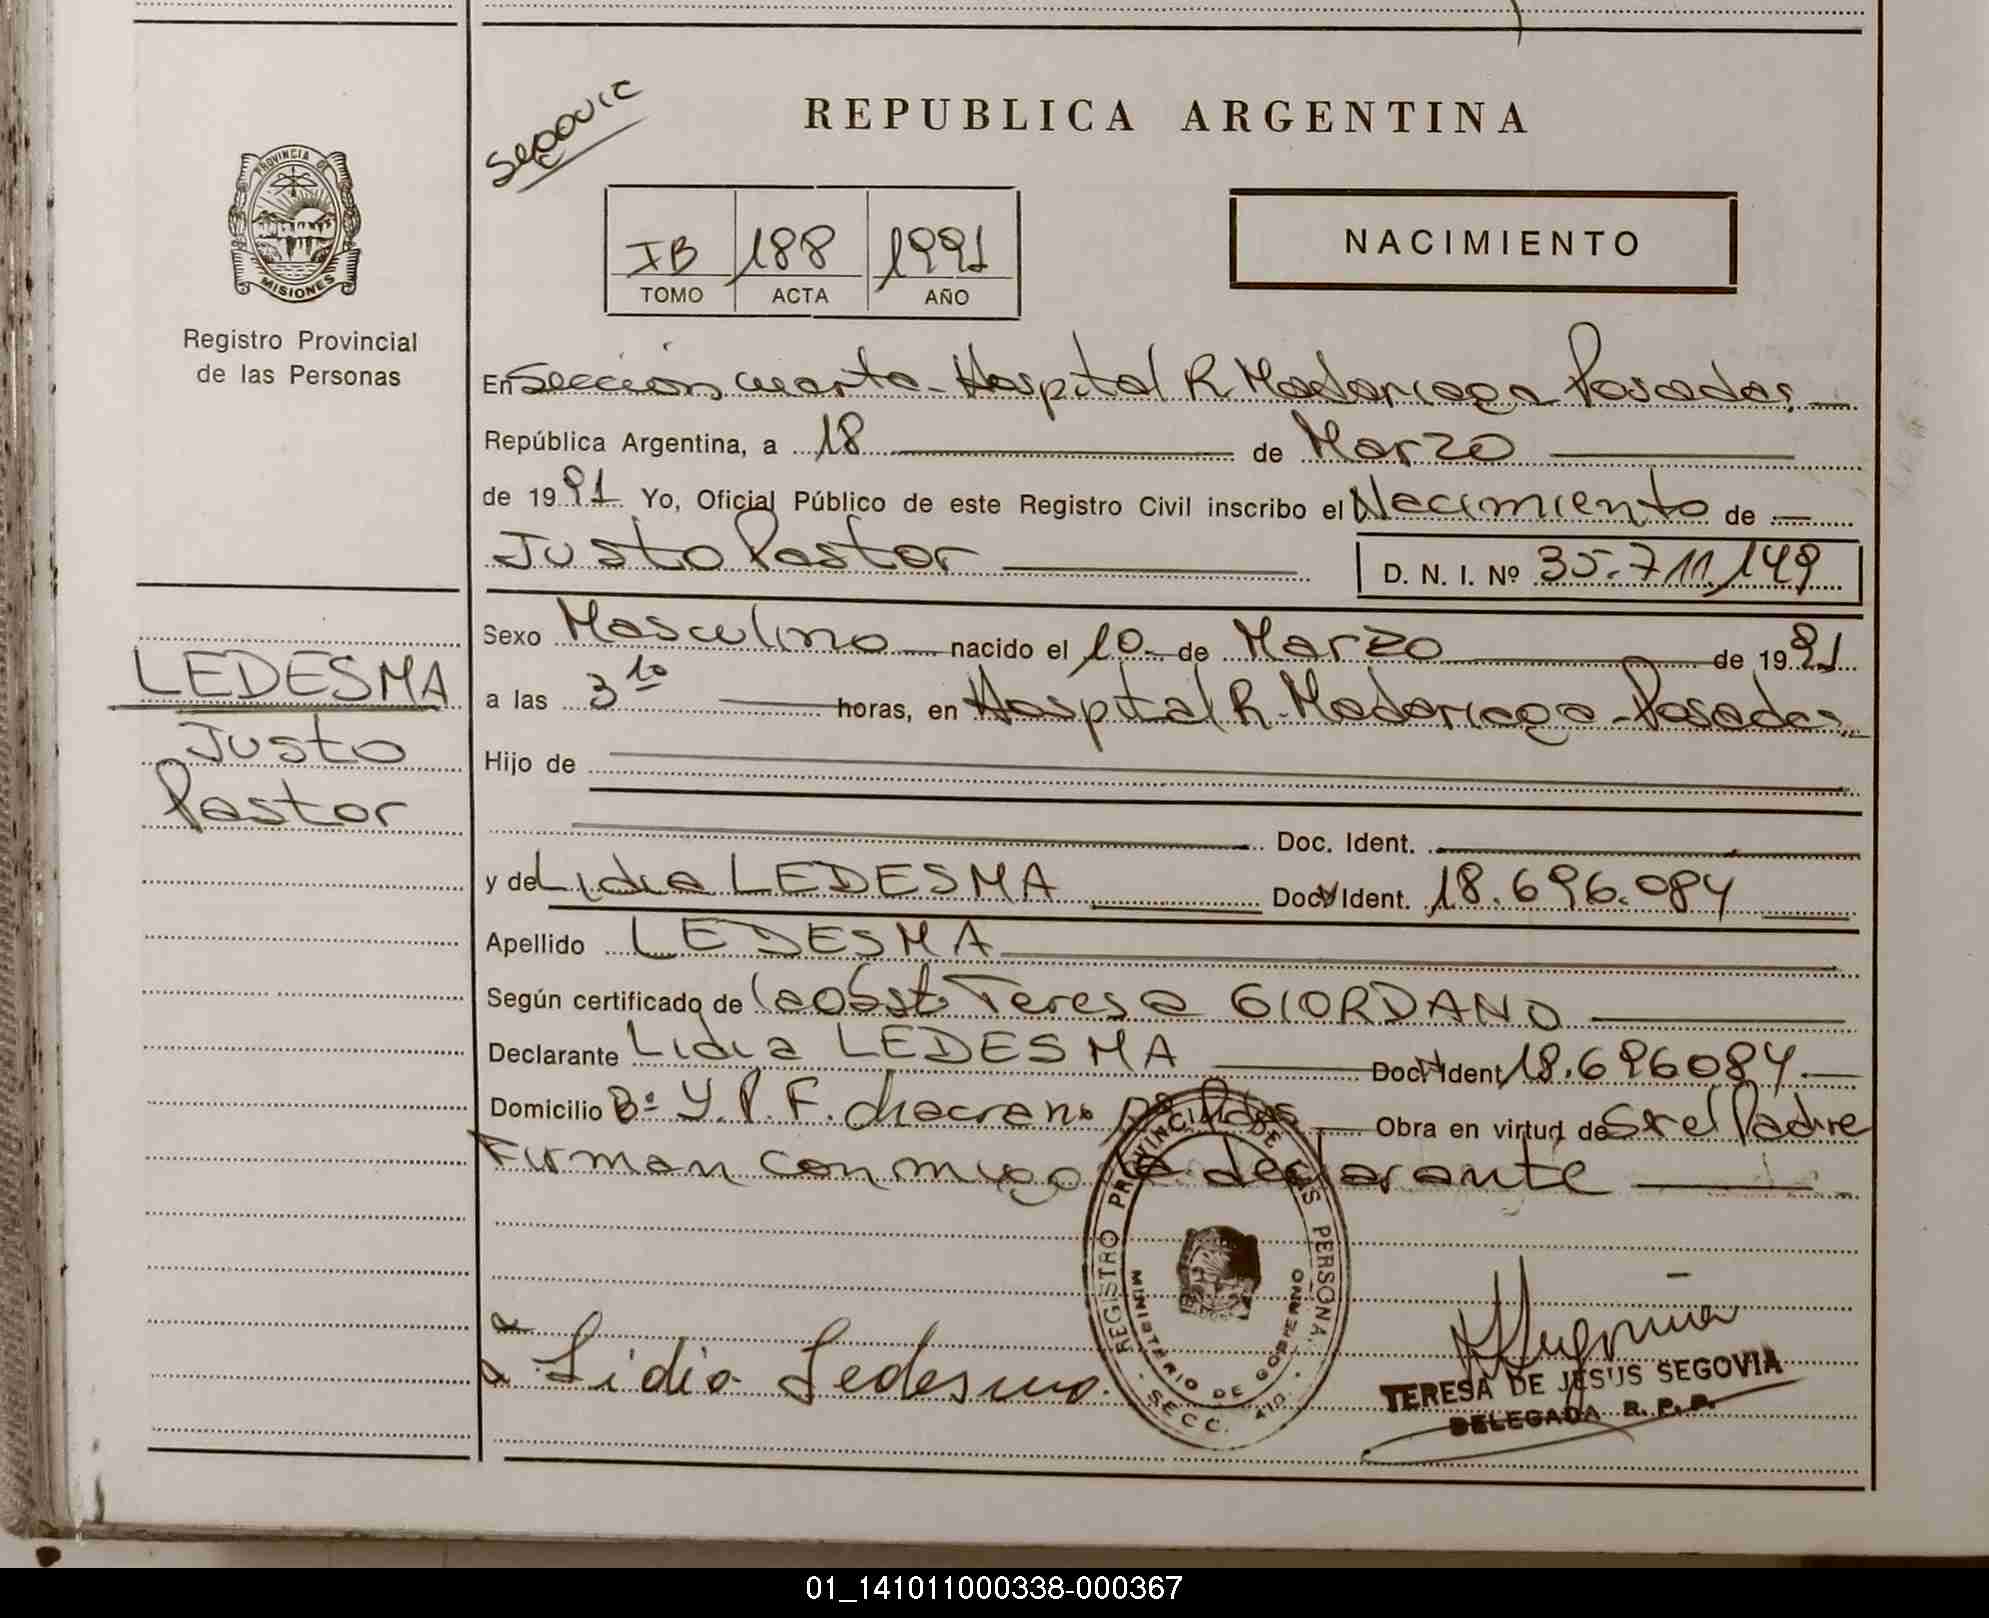 REPUBLICA ARGENTINA
PROVINCIA DE
MISIONES
Registro Provincial
de las Personas
IB 188 1991
TOMO ACTA AÑO
NACIMIENTO
En Sección cuarta - Hospital R Madariaga Posadas
República Argentina, a 18 de Marzo
de 1991 Yo, Oficial Público de este Registro Civil inscribo el Nacimiento de
Justo Pastor
D. N. I. Nº 35.711.149
Sexo Masculino nacido el 10 de Marzo de 1991
a las 3 10 horas, en Hospital R. Madariaga - Posadas
Hijo de
Doc. Ident.
y de Lidia LEDESMA Doc. Ident. 18.696.084
Apellido LEDESMA
Según certificado de Teresa GIORDANO
Declarante Lidia LEDESMA Doc. Ident. 18.696084
Domicilio Bº Y.P.F. chacra Obra en virtud de Ser el Padre
Firman conmigo la declarante
LEDESMA
Justo
Pastor
REGISTRO PROVINCIAL DE LAS PERSONAS
MINISTERIO DE GOBIERNO
SECC. 4ta.
Lidia Ledesma.
TERESA DE JESUS SEGOVIA
DELEGADA R. P. P.
01_141011000338-000367